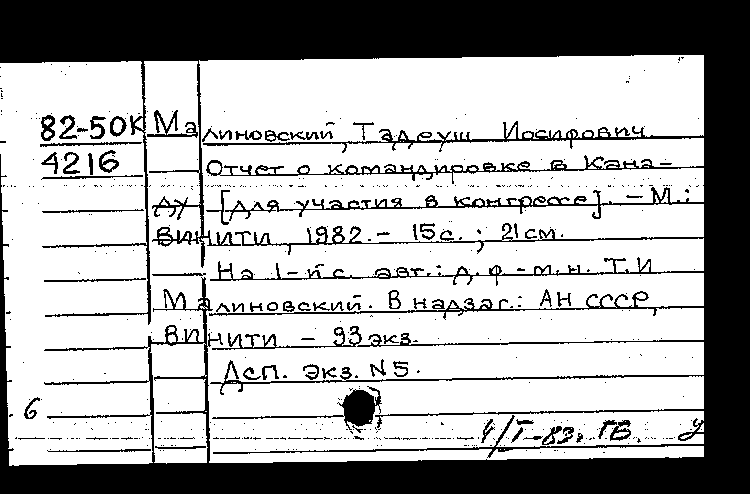 82-50К Малиновский, Тадеуш Иосифович.
4216 Отчет о командировке в Кана-
ду [для участия в конгрессе]. - М.:
ВИНИТИ, 1982. - 15 с.; 21 см.
На 1-й с. авт.: д. ф.-м. н. Т.И
Малиновский. В надзаг.: АН СССР,
ВИНИТИ - 93 экз.
Дсп. Экз. N5.
6
4/I-83. ГВ. У